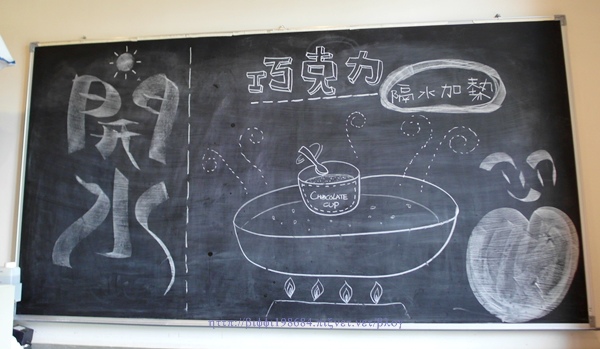 開水
巧克力
隔水加熱
CHOCOLATE
CUP